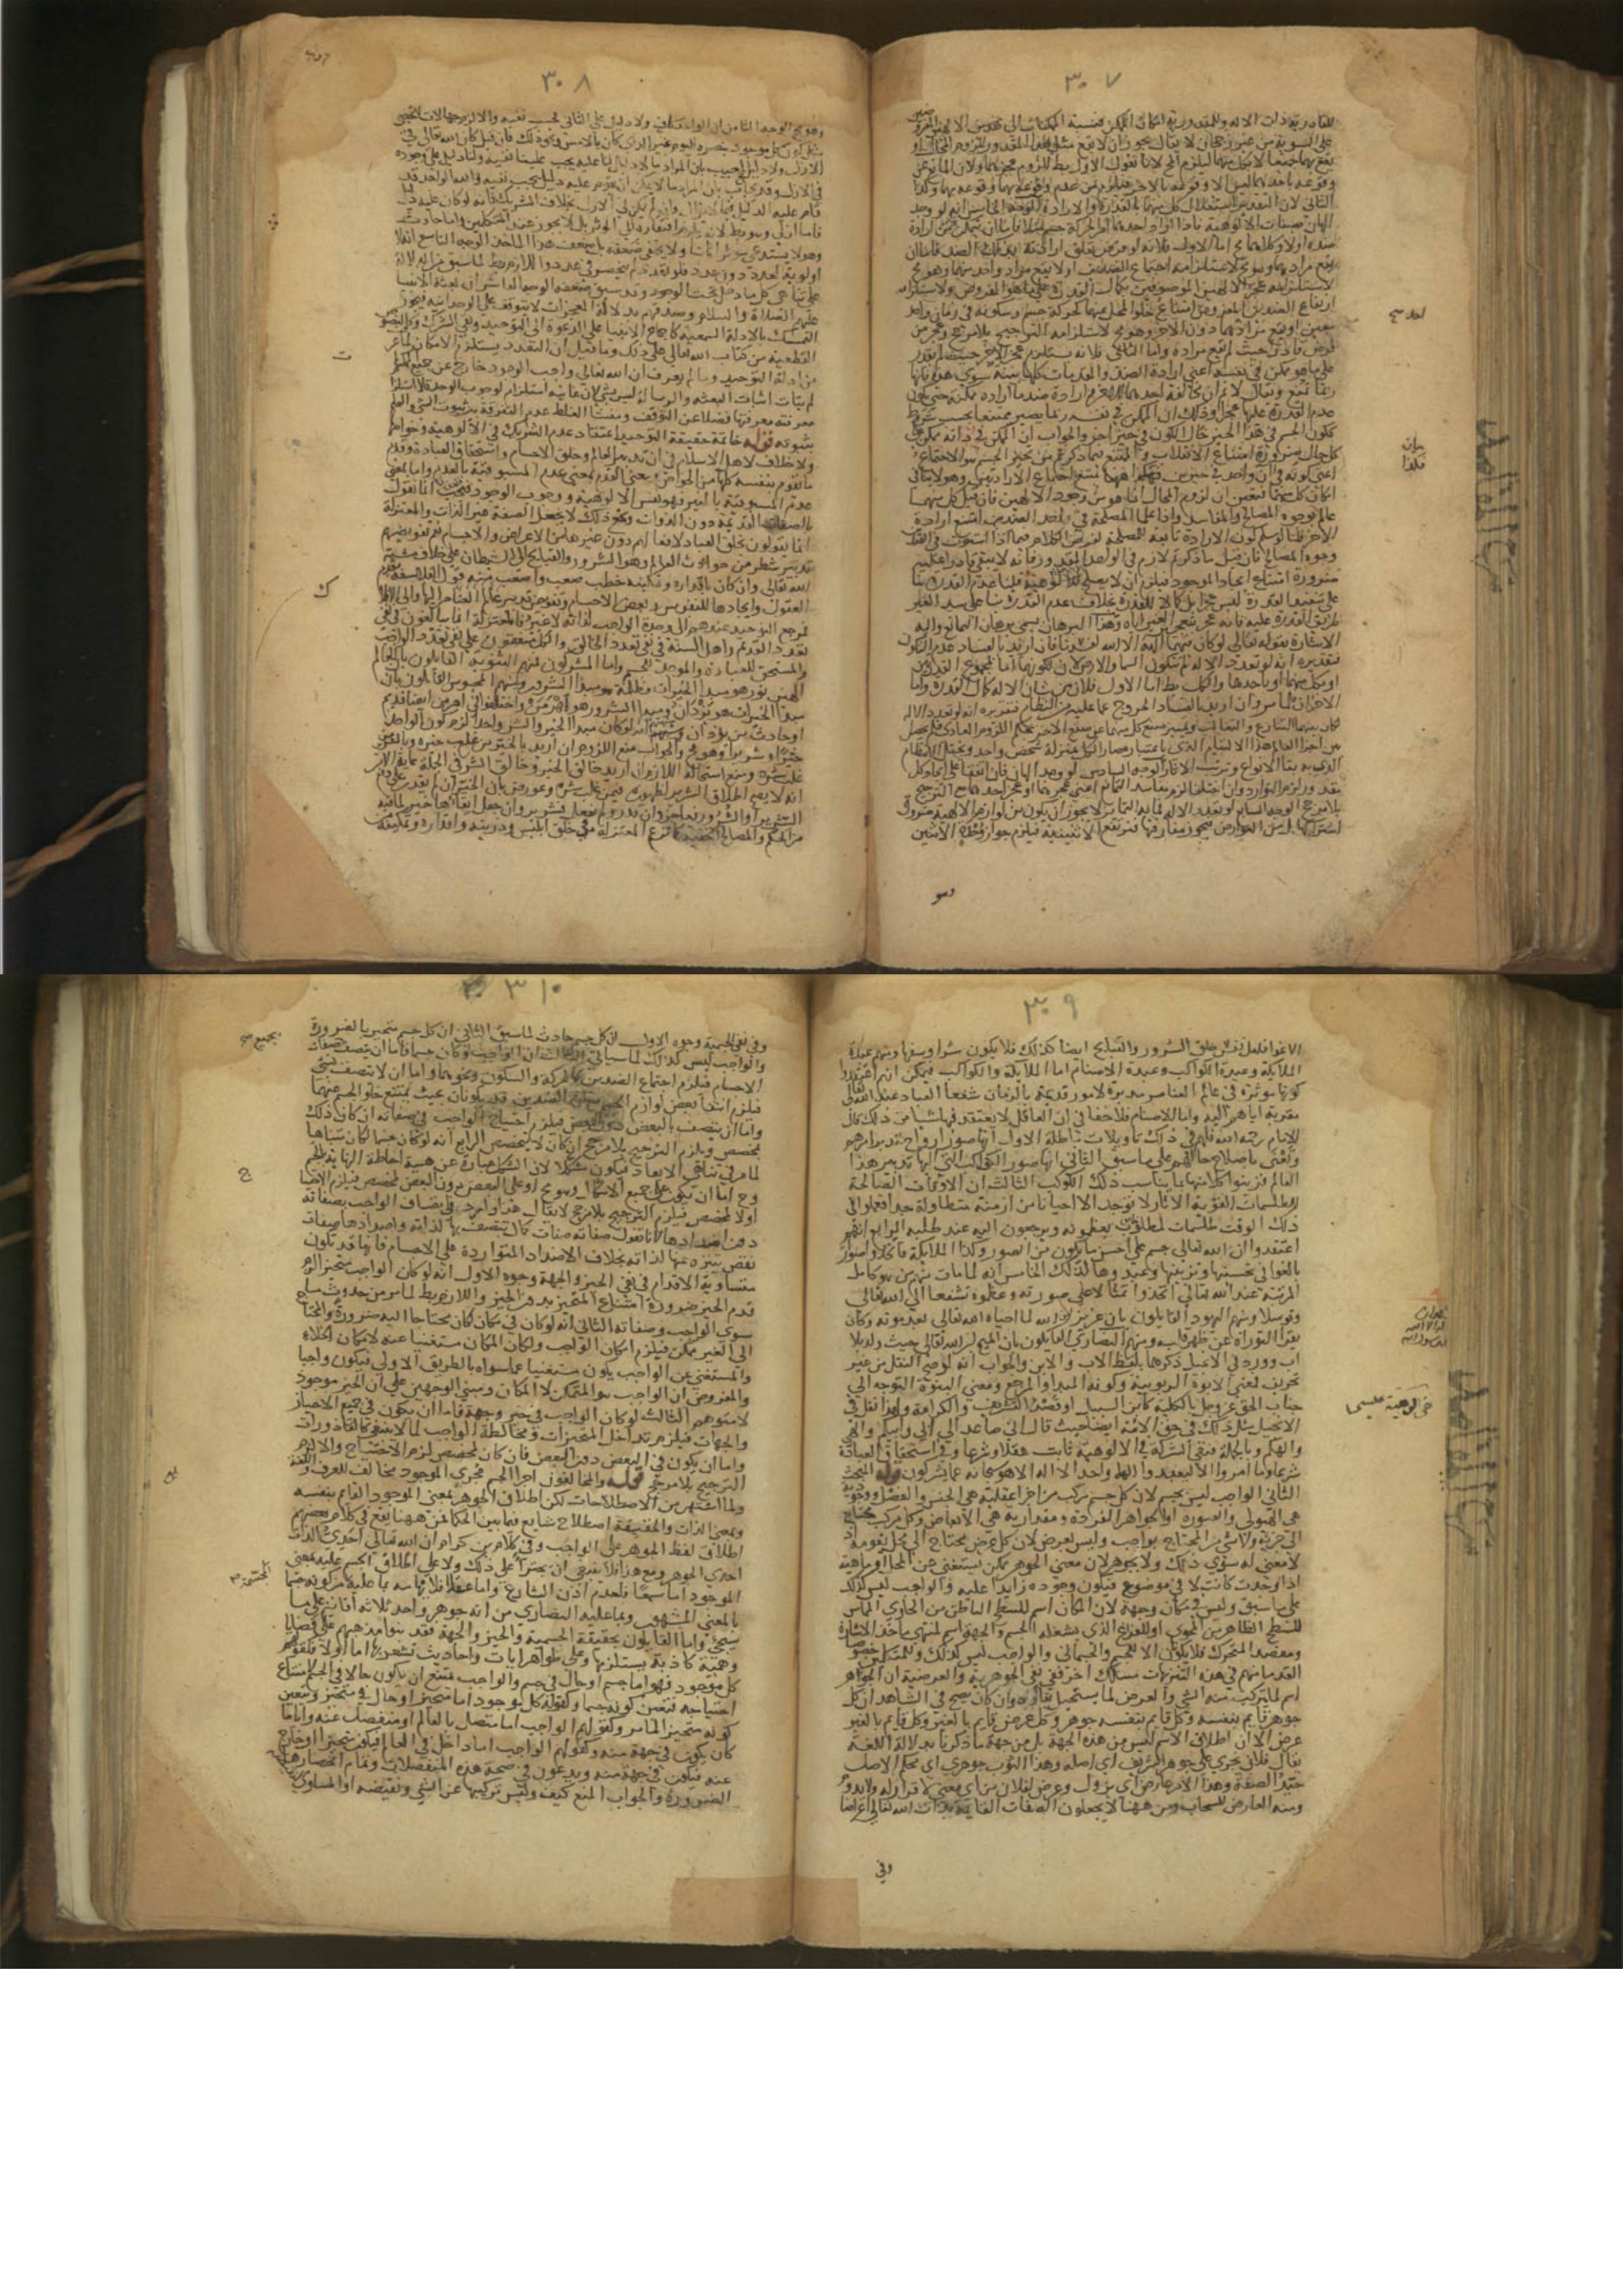 ٣٠٧
للقادرية ذات الاله وللمقدورية امكان الممكن فنسبة الممكنات الى الالهين
على السوية من غير رجحان لا يقال يجوز ان لا يقع مثل هذا المقدور للزوم المحال او
يقع بهما جميعا لا بكل منهما ليلزم المحال لانا نقول الاول بط للزوم عجزهما ولان المانع عن
وقوعه باحدهما ليس الا وقوعه بالاخر فيلزم من عدم وقوعه بهما وقوعه بهما وكذا
الثاني لان التقدير استقلال كل منهما بالقدرة والارادة الوجه الخامس انه لو وجد
الهان بصفات الالوهية فاذا اراد احدهما امرا كحركة جسم مثلا فاما ان يتمكن الاخر من ارادة
ضده اولا وكلاهما مح اما الاول فلانه لو فرض تعلق ارادته بذلك الضد فاما ان
يقع مرادهما وهو مح لاستلزامه اجتماع الضدين او لا يقع مراد واحد منهما وهو مح
لاستلزامه عجز الالهين الموصوفين بكمال القدرة على ما هو المفروض ولاستلزامه
ارتفاع الضدين المفروض امتناع خلو المحل عنهما كحركة جسم وسكونه في زمان واحد
معين او يقع مراد احدهما دون الاخر وهو مح لاستلزامه الترجيح بلا مرجح وعجز من
فرض قادرا حيث لم يقع مراده واما الثاني فلانه يستلزم عجز الاخر حيث لم يقدر
على ما هو ممكن في نفسه اعني ارادة الضد والمقدمات كلها بينة سوى هذه فانها
ربما تمنع ويقال لا نم ان مخالفة احدهما للاخر وارادة ضد ما اراده ممكنة حتى يكون
عدم القدرة عليها عجزا وذلك ان الممكن في نفسه ربما يصير ممتنعا بحسب شرط
ككون الجسم في هذا الحيز حال الكون في حيز اخر والجواب ان الممكن في ذاته ممكن على
كل حال ضرورة امتناع الانقلاب والممتنع فيما ذكر تم من تحيز الجسم هو الاجتماع
اعني كونه في آن واحد في حيزين فكذا ههنا يمتنع اجتماع الارادتين وهو لا ينافي
امكان كل منهما فتعين ان لزوم المحال انما هو من وجود الالهين فان قيل كل منهما
عالم بوجوه المصالح والمفاسد فاذا علما المصلحة في احد الضدين امتنع ارادة
الاخر قلنا لو سلم كون الارادة تابعة للمصلحة نفرض الكلام فيما اذا استوت في الضدين
وجوه المصالح فان قيل ما ذكرتم لازم في الواحد اذا اوجد المقدور فانه لا يبقى قادرا عليه
ضرورة امتناع ايجاد الموجود فيلزم ان لا يصلح للالوهية قلنا عدم القدرة بنا
على تنفيذ القدرة ليس عجزا بل كمالا للقدرة بخلاف عدم القدرة بنا على سد الغير
طريق القدرة عليه فانه عجز بتعجيز الغير اياه وهذا البرهان يسمى برهان التمانع واليه
الاشارة بقوله تعالى لو كان فيهما آلهة الا الله لفسدتا فان اريد بالفساد عدم التكون
فتقديره انه لو تعدد الاله لم تتكون السما والارض لان تكونهما اما بمجموع القدرتين
او بكل منهما او باحدهما والكل بط اما الاول فلان من شان الاله كمال القدرة واما
الاخران فلما مر وان اريد بالفساد الخروج عما عليه من النظام فتقديره انه لو تعدد الاله
لكان بينهما التنازع والتغالب وتميز صنع كل منهما عن صنع الاخر بحكم اللزوم العادي فلم يحصل
بين اجزا العالم هذا الالتيام الذي باعتباره صار الكل بمنزلة شخص واحد ويختل النظام
الذي به بقا الانواع وترتب الاثار الوجه السادس لو وجد الهان فان اتفقا على ايجاد كل
مقدور لزم التوارد وان اختلفا لزم مفاسد التمانع اعني عجزهما او عجز احدهما مع الترجيح
بلا مرجح الوجه السابع لو تعدد الاله فما به التمايز لا يجوز ان يكون من لوازم الالهية ضرورة
اشتراكها بل من العوارض فيجوز مفارقتها فترتفع الاثنينية فيلزم جواز وحدة الاثنين
وهو
احدهما صح
بيان
فكذا
٣٠٨
وهو مح الوجه الثامن ان الواحد كاف ولا دليل على الثاني فيجب نفيه والا لزم جهالات لا تحصى
مثل كون كل موجود نبصره اليوم غير الذي كان بالامس ونحو ذلك فان قيل كان الله تعالى في
الازل ولا دليل اجيب بان المراد ما لا دليل لنا عليه يجب علينا نفيه ولنا دليل على وجوده
في الازل وقد يجاب بان المراد ما لا يمكن ان يقوم عليه دليل يجب نفيه والله الواحد قد
قام عليه الدليل فيما لا يزال وان لم يكن في الازل بخلاف الشريك فانه لو كان عليه دليل
فاما ازلي وهو بط لانه يلزم افتقاره الى المؤثر بل لا يجوز عند المتكلمين واما حادث
وهو لا يستدعي مؤثرا ثانيا ولا يخفى ضعفه بل ضعف هذا الماخذ الوجه التاسع انه لا
اولوية لعدد دون عدد فلو تعدد لم ينحصر في عدد واللازم بط لما سبق من الادلة
على تناهي كل ما دخل تحت الوجود وقد سبق ضعفه الوجه العاشر ان بعثة الانبيا
عليهم الصلاة والسلام وصدقهم بدلالة المعجزات لا يتوقف على الوحدانية فيجوز
التمسك بالادلة السمعية كاجماع الانبيا على الدعوة الى التوحيد ونفي الشريك وكالنصوص
القطعية من كتاب الله تعالى على ذلك وما قيل ان التعدد يستلزم الامكان لما عرف
من ادلة التوحيد وما لم يعرف ان الله تعالى واجب الوجود خارج عن جميع الممكنات
لم يتات اثبات البعثة والرسالة ليس بشي لان غايته استلزام لوجوب الوحدة لا استلزام
معرفته معرفتها فضلا عن التوقف ومنشا الغلط عدم التفرقة بين ثبوت الشي والعلم
بثبوته قوله خاتمة حقيقة التوحيد اعتقاد عدم الشريك في الالوهية وخواصها
ولا خلاف لاهل الاسلام في ان تدبير العالم وخلق الاجسام واستحقاق العبادة وقدم
ما يقوم بنفسه كلها من الخواص يعني القدم بمعنى عدم المسبوقية بالعدم واما بمعنى
عدم المسبوقية بالغير فهو نفس الالوهية ووجوب الوجود فنحن انما نقول
بالصفات القديمة دون الذوات ومع ذلك لا نجعل الصفة غير الذات والمعتزلة
انما يقولون بخلق العباد لافعالهم دون غيرها من الاعراض والاجسام نعم تفويضهم
تدبير شطر من حوادث العالم وهو الشرور والقبايح الى الشيطان على خلاف مشية
الله تعالى وان كان باقداره وتمكينه خطب صعب واصعب منه قول الفلاسفة بقدم
العقول وايجادها للنفوس وبعض الاجسام وتفويض تدبير عالم العناصر اليها والى الافلاك
فمرجع التوحيد عندهم الى وحدة الواجب لذاته لا غير فالمعتزلة انما يبالغون في نفي
تعدد القديم واهل السنة في نفي تعدد الخالق والكل متفقون على نفي تعدد الواجب
والمستحق للعبادة والموجد للجسم واما المشركون فمنهم الثنوية القايلون بان للعالم
الهين نور هو مبدا الخيرات وظلمة هو مبدا الشرور ومنهم المجوس القايلون بان
مبدا الخيرات هو يزدان ومبدا الشرور هو اهرمن واختلفوا في اهرمن ايضا قديم
او حادث من يزدان وشبهتهم انه لو كان مبدا الخير والشر واحدا لزم كون الواحد
خيرا وشريرا وهو مح والجواب منع اللزوم ان اريد بالخير من غلب خيره وبالشرير من
غلب شره ومنع استحالة اللازم ان اريد خالق الخير وخالق الشر في الجملة غاية الامر
انه لا يصح اطلاق الشرير لظهوره فيمن غلب شره وعورض بان الخير ان لم يقدر على دفع
الشرير او الشرور فعاجز وان قدر ولم يفعل فشرير وان جعل ابقاءها خيرا لما فيه
من الحكم والمصالح الخفية كما تزعم المعتزلة في خلق ابليس وذريته واقداره وتمكينه
ت
ك
٣٠٩
الاغوا فلعل نفس خلق الشرور والقبايح ايضا كذلك فلا يكون شرا وسفها ومنهم عبدة
الملائكة وعبدة الكواكب وعبدة الاصنام اما الملائكة والكواكب فيمكن انهم اعتقدوا
كونها مؤثرة في عالم العناصر مدبرة لامور قديمة بالزمان شفعا العباد عند الله تعالى
مقربة اياهم اليه واما الاصنام فلا خفا في ان العاقل لا يعتقد فيها شيا من ذلك قال
الامام رحمه الله فلهم في ذلك تاويلات باطلة الاول انها صور ارواح تدبر امرهم
وتعتني باصلاح حالهم على ما سبق الثاني انها صور الكواكب التي اليها تدبير هذا
العالم فزينوا كلا منها بما يناسب ذلك الكوكب الثالث ان الاوقات الصالحة
للطلسمات القوية الاثار لا توجد الا احيانا من ازمنة متطاولة جدا فعملوا في
ذلك الوقت طلسمات لمطالب يعظمونه ويرجعون اليه عند طلبه الرابع انهم
اعتقدوا ان الله تعالى جسم على احسن ما يكون من الصور وكذا الملائكة فاتخذوا صورا
بالغوا في تحسينها وتزيينها وعبدوها لذلك الخامس انه لما مات منهم من هو كامل
المرتبة عند الله تعالى اتخذوا تمثالا على صورته وعظموه تشفعا الى الله تعالى
وتوسلا ومنهم اليهود القايلون بان عزير ابن الله لما احياه الله تعالى بعد موته وكان
يقرا التوراة عن ظهر قلبه ومنهم النصارى القايلون بان المسيح ابن الله تعالى حيث ولد بلا
اب وورد في الانجيل ذكرهما بلفظ الاب والابن والجواب انه لو صح النقل من غير
تحريف فمعنى الابوة الربوبية وكونه المبدا والمرجع ومعنى البنوة التوجه الى
جناب الحق عز وجل بالكلية كابن السبيل او قصد التشريف والكرامة ولهذا نقل في
الانجيل مثل ذلك في حق الامة ايضا حيث قال اني صاعد الى ابي وابيكم والهي
والهكم وبالجملة فنفي الشركة في الالوهية ثابت عقلا وشرعا وفي استحقاق العبادة
شرعا وما امروا الا ليعبدوا الها واحدا لا اله الا هو سبحانه عما يشركون قوله المبحث
الثاني الواجب ليس بجسم لان كل جسم مركب من اجزا عقلية هي الجنس والفصل ووجودية
هي الهيولى والصورة او الجواهر الفردة ومقدارية هي الابعاض وكل مركب محتاج
الى جزيه ولا شي من المحتاج بواجب وليس بعرض لان كل عرض محتاج الى محل يقومه اذ
لا معنى له سوى ذلك ولا بجوهر لان معنى الجوهر ممكن يستغني عن المحل او ماهية
اذا وجدت كانت لا في موضوع فيكون وجوده زايدا عليه والواجب ليس كذلك
على ما سبق وليس في مكان وجهة لان المكان اسم للسطح الباطن من الحاوي المماس
للسطح الظاهر من المحوي او للفراغ الذي يشغله الجسم والجهة اسم لمنتهى ماخذ الاشارة
ومقصد المتحرك فلا يكونان الا للجسم والجسماني والواجب ليس كذلك وللمتكلمين خصوصا
القدما منهم في هذه التنزيهات مسلك اخر ففي نفي الجوهرية والعرضية ان الجوهر
اسم لما يتركب منه الشي والعرض لما يستحيل بقاؤه وان كان يصح في الشاهد ان كل
جوهر قايم بنفسه وكل قايم بنفسه جوهر وكل عرض قايم بالغير وكل قايم بالغير
عرض الا ان اطلاق الاسم ليس من هذه الجهة بل من جهة ما ذكرنا بدلالة اللغة
يقال فلان يجري على جوهره الشريف اي اصله وهذا الثوب جوهري اي محكم الاصل
جيد الصنعة وهذا الامر عارض اي يزول وعرض لفلان من اي معنى لا قرار له ولا يدوم
ومنه العارض للسحاب ومن ههنا لا يجعلون الصفات القايمة بذات الله تعالى اعراضا
وفي
٣١٠
وفي نفي الجسمية وجوه الاول ان كل جسم حادث لما سبق الثاني ان كل جسم متحيز بالضرورة
والواجب ليس كذلك لما سياتي الثالث ان الواجب لو كان جسما فاما ان يتصف صفات
الاجسام فيلزم اجتماع الضدين كالحركة والسكون ونحوهما واما ان لا يتصف بشي
فيلزم انتفا بعض لوازم الجسم مع ان الضدين قد يكونان بحيث يمتنع خلو الجسم عنهما
واما ان يتصف بالبعض دون البعض فيلزم احتياج الواجب في صفاته ان كان ذلك
لمخصص ويلزم الترجيح بلا مرجح ان كان لا لمخصص الرابع انه لو كان جسما لكان متناهيا
لما مر في تناهي الابعاد فيكون شكلا لان الشكل عبارة عن هيئة احاطة النهاية بالجسم
وح اما ان يكون على جميع الاشكال وهو مح او على البعض دون البعض لمخصص فيلزم الاحتياج
اولا لمخصص فيلزم الترجيح بلا مرجح لا يقال هذا وارد في اتصاف الواجب بصفاته
دون اضدادها لانا نقول صفاته صفات كمال يتصف بها لذاته واضدادها صفات
نقص يتنزه عنها لذاته بخلاف الاضداد المتواردة على الاجسام فانها قد تكون
متساوية الاقدام وفي نفي الحيز والجهة وجوه الاول انه لو كان الواجب متحيزا لزم
قدم الحيز ضرورة امتناع المتحيز بدون الحيز واللازم بط لما مر من حدوث ما
سوى الواجب وصفاته الثاني انه لو كان في مكان كان محتاجا اليه ضرورة والمحتاج
الى الغير ممكن فيلزم امكان الواجب ولكان المكان مستغنيا عنه لامكان الخلاء
والمستغني عن الواجب يكون مستغنيا عما سواه بالطريق الاولى فيكون واجبا
والمفروض ان الواجب هو المتمكن لا المكان ومبنى الوجهين على ان الحيز موجود
لا متوهم الثالث لو كان الواجب في حيز وجهة فاما ان يكون في جميع الاحياز
والجهات فيلزم تداخل المتحيزات ومخالطة الواجب لما لا ينبغي كالقاذورات
واما ان يكون في البعض دون البعض فان كان لمخصص لزم الاحتياج والا لزم
الترجيح بلا مرجح قوله والمخالفون اجرا الجسم مجرى الموجود مخالف للعرف واللغة
ولما اشتهر من الاصطلاحات لكن اطلاق الجوهر بمعنى الموجود القايم بنفسه
وبمعنى الذات والحقيقة اصطلاح شايع فيما بين الحكما فمن ههنا يقع في كلام بعضهم
اطلاق لفظ الجوهر على الواجب وفي كلام ابن كرام ان الله تعالى احدي الذات
احدي الجوهر ومع هذا فلا ينبغي ان يجترا على ذلك ولا على اطلاق الجسم عليه بمعنى
الموجود اما سمعا فلعدم اذن الشارع واما عقلا فلايهامه بما عليه من كونه جسما
بالمعنى المشهور وبما عليه النصارى من انه جوهر واحد ثلاثة اقانيم على ما
سيجي واما القايلون بحقيقة الجسمية والحيز والجهة فقد بنوا مذهبهم على قضايا
وهمية كاذبة يستلزمها وعلى ظواهر ايات واحاديث تشعر بها اما الاول فكقولهم
كل موجود فهو اما جسم او حال في جسم والواجب يمتنع ان يكون حالا في الجسم لامتناع
احتياجه فتعين كونه جسما وكقولهم كل موجود اما متحيز او حال في متحيز وتعين
كونه متحيزا لما مر وكقولهم الواجب اما متصل بالعالم او منفصل عنه وايا ما
كان يكون في جهة منه وكقولهم الواجب اما داخل في العالم فيكون متحيزا او خارج
عنه فيكون في جهة منه ويدعون في صحة هذه المنفصلات وتمام انحصارها
الضرورة والجواب المنع كيف وليس تركيبها عن الشي ونقيضه او المساوي
بجميع صح
ح
المجسمة صح